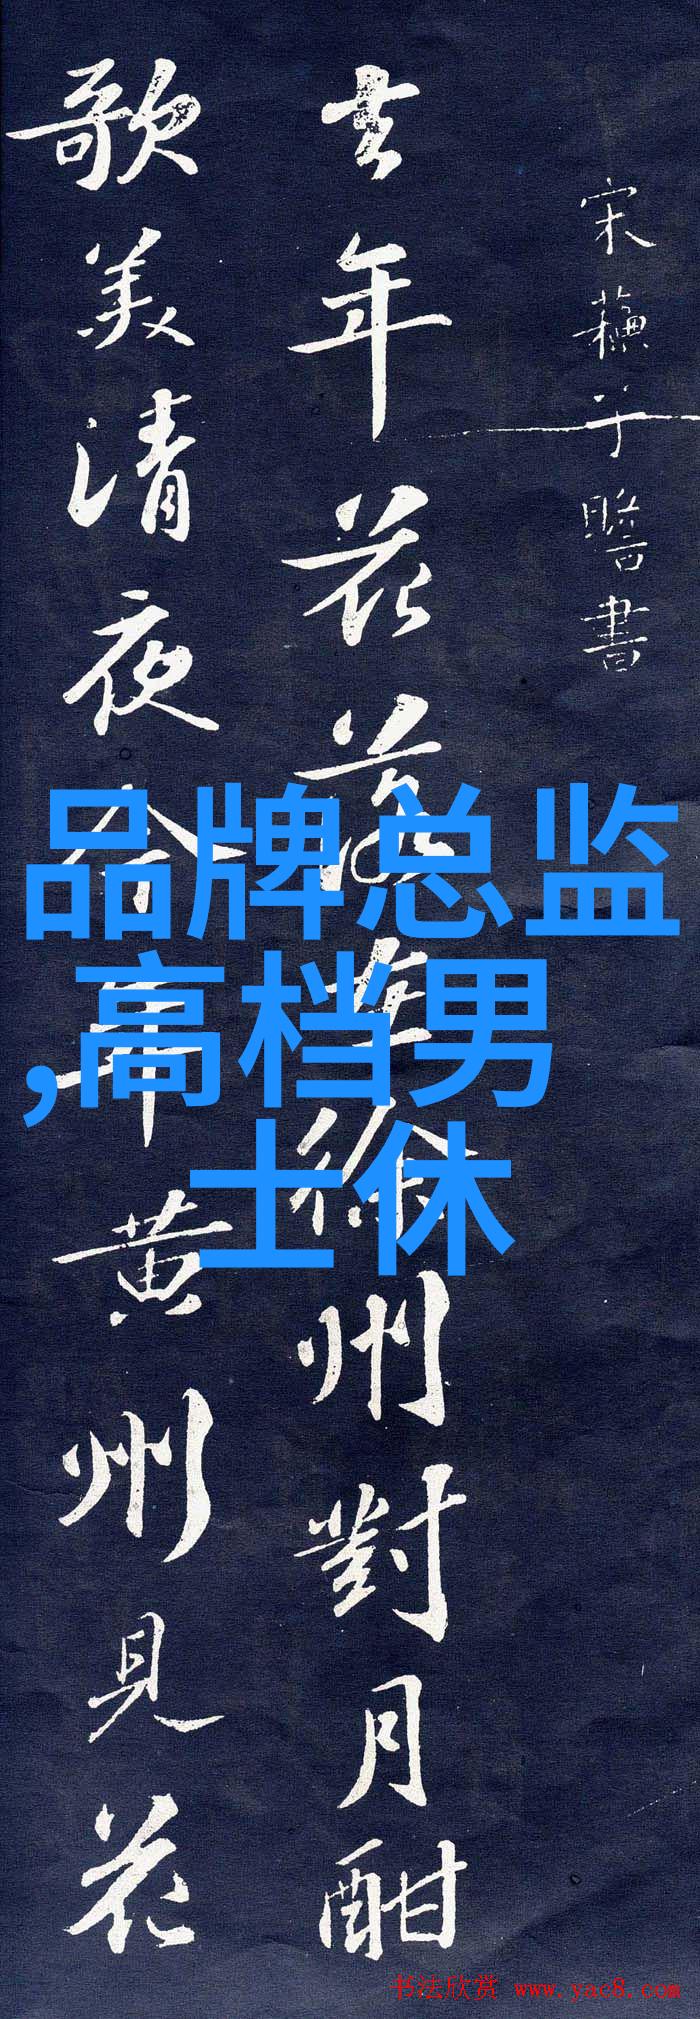 宋蘇子瞻書
去年花落在徐州對月酣
歌美清夜今年黄州見花
品牌总监
,高档男
士休
书法欣赏 www.yac8.com